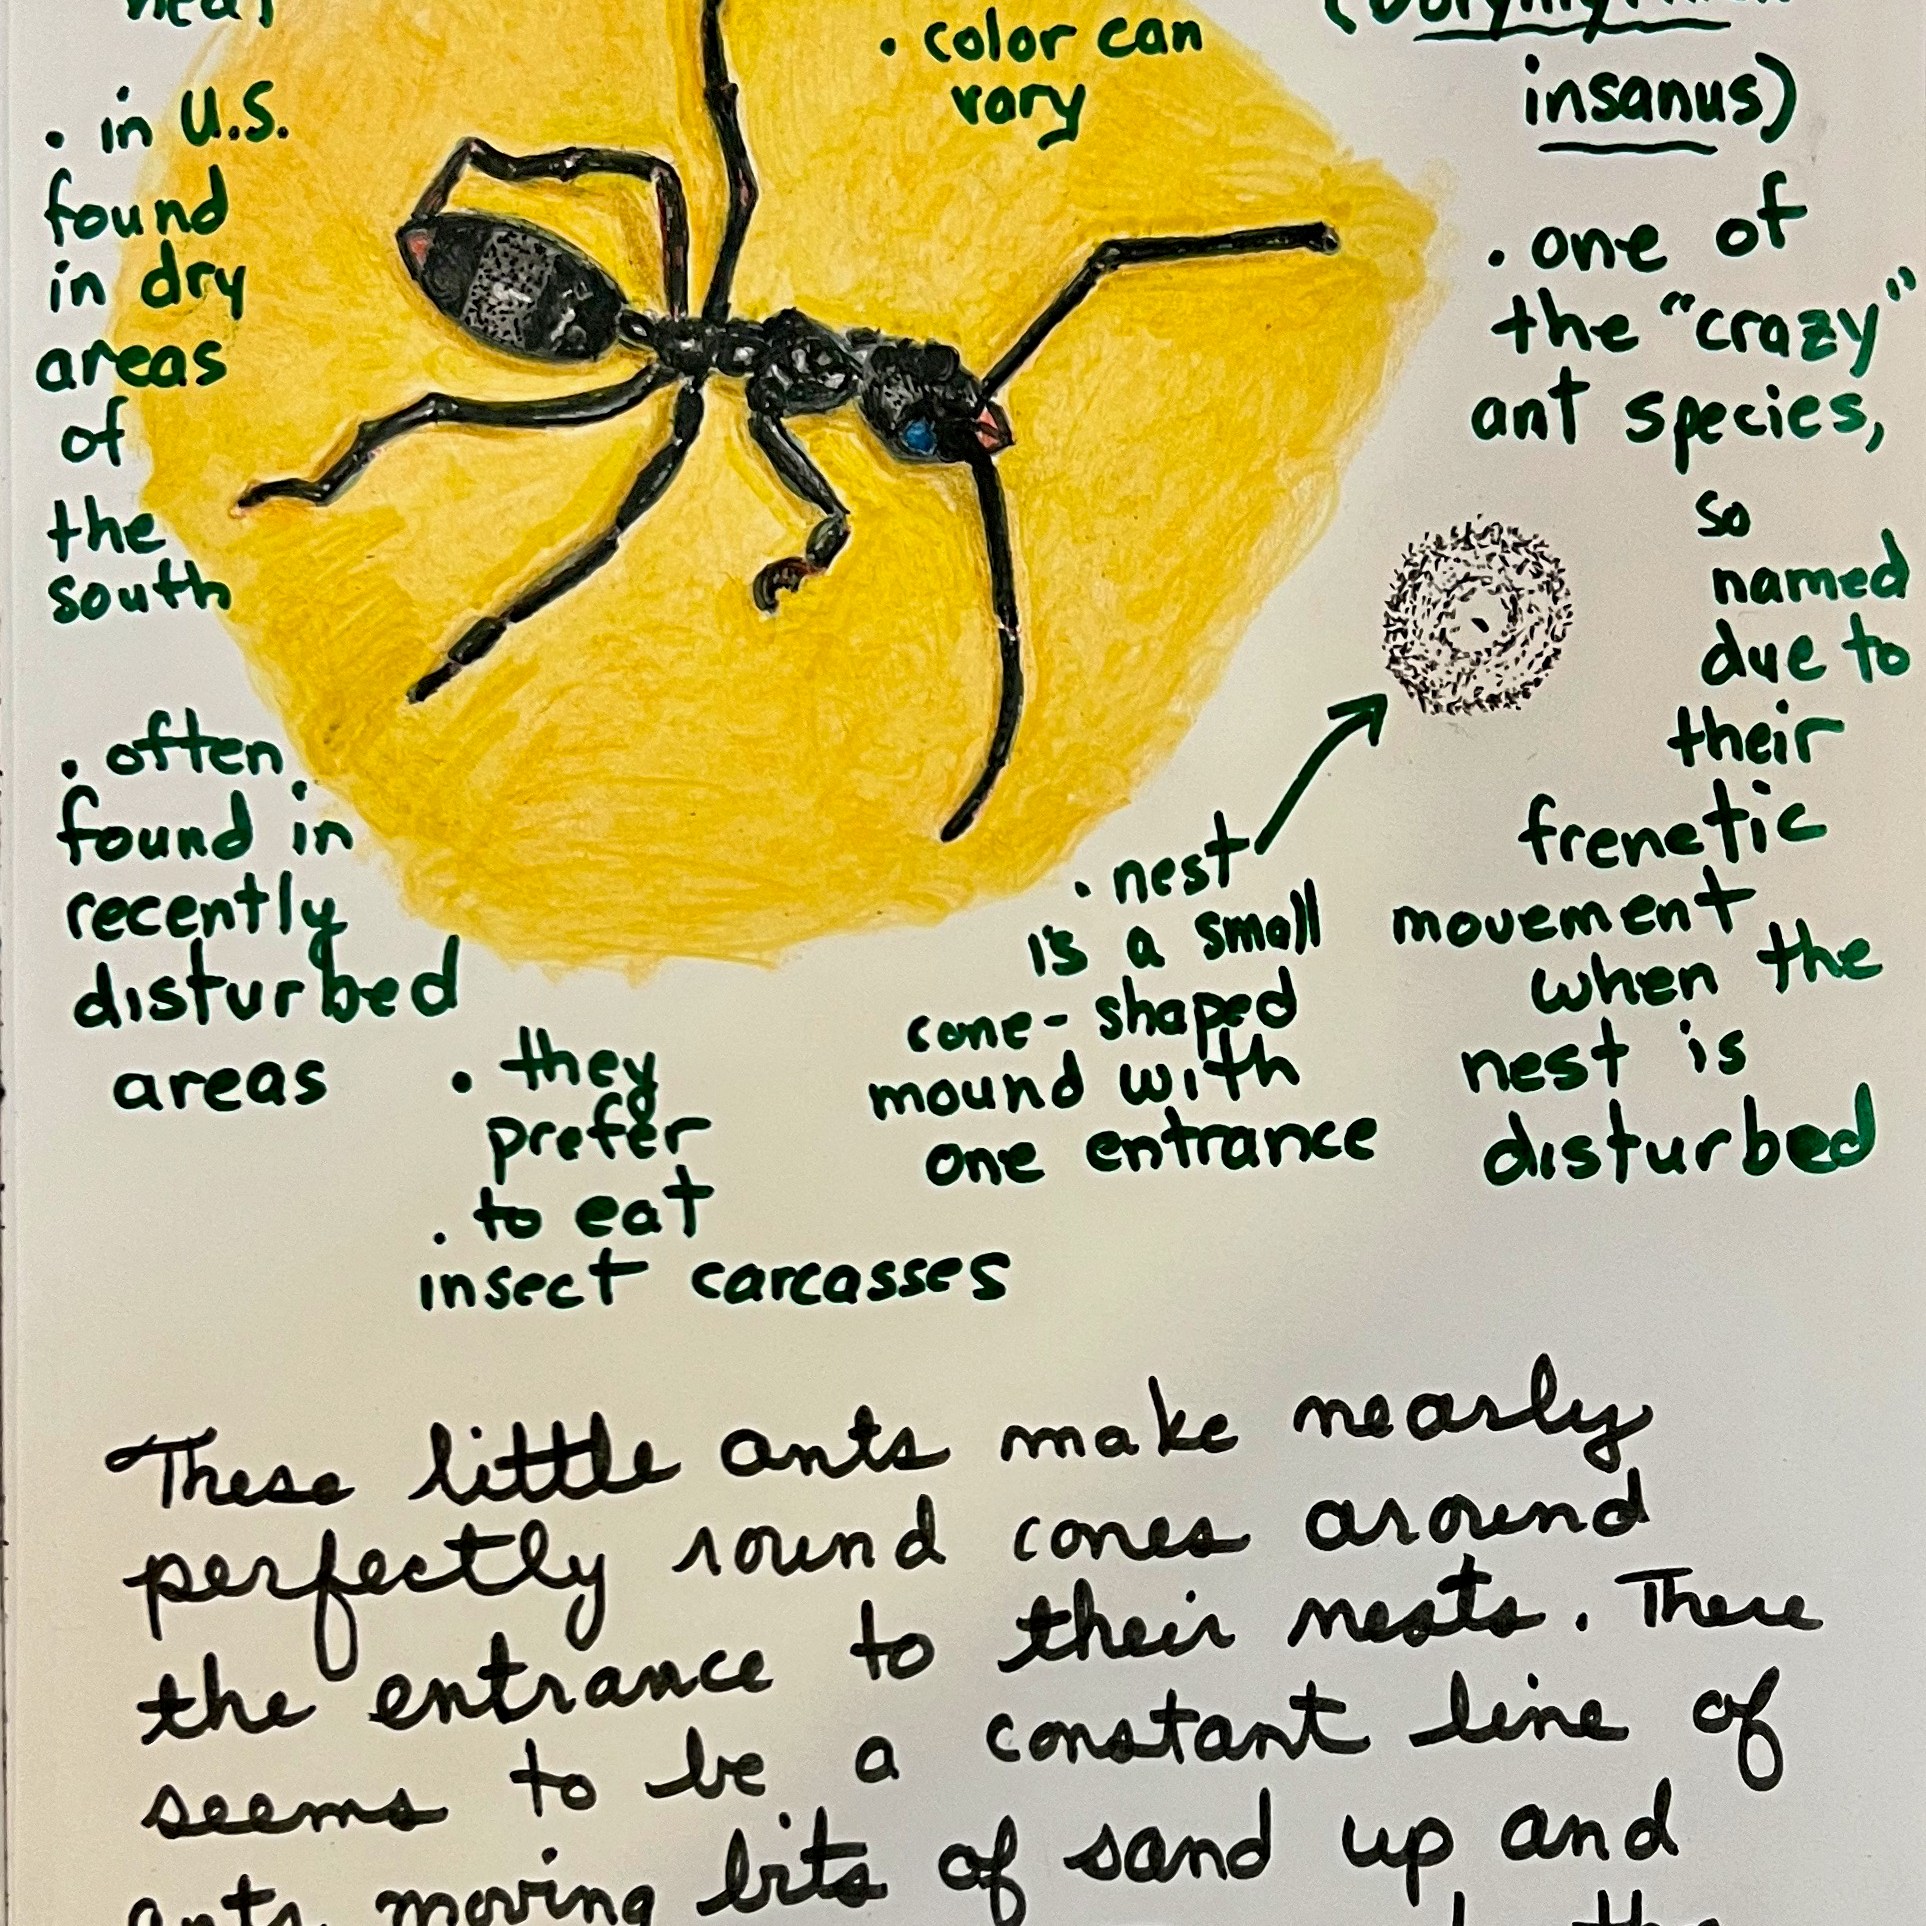 heat
• in U.S.
found
in dry
areas
of
the
south
• often
found in
recently
disturbed
areas
• color can
vary
insanus)
• one of
the "crazy"
ant species,
so
named
due to
their
frenetic
movement
when the
nest is
disturbed
• nest
is a small
cone-shaped
mound with
one entrance
• they
prefer
• to eat
insect carcasses
These little ants make nearly
perfectly round cones around
the entrance to their nests. There
seems to be a constant line of
ants moving bits of sand up and
the